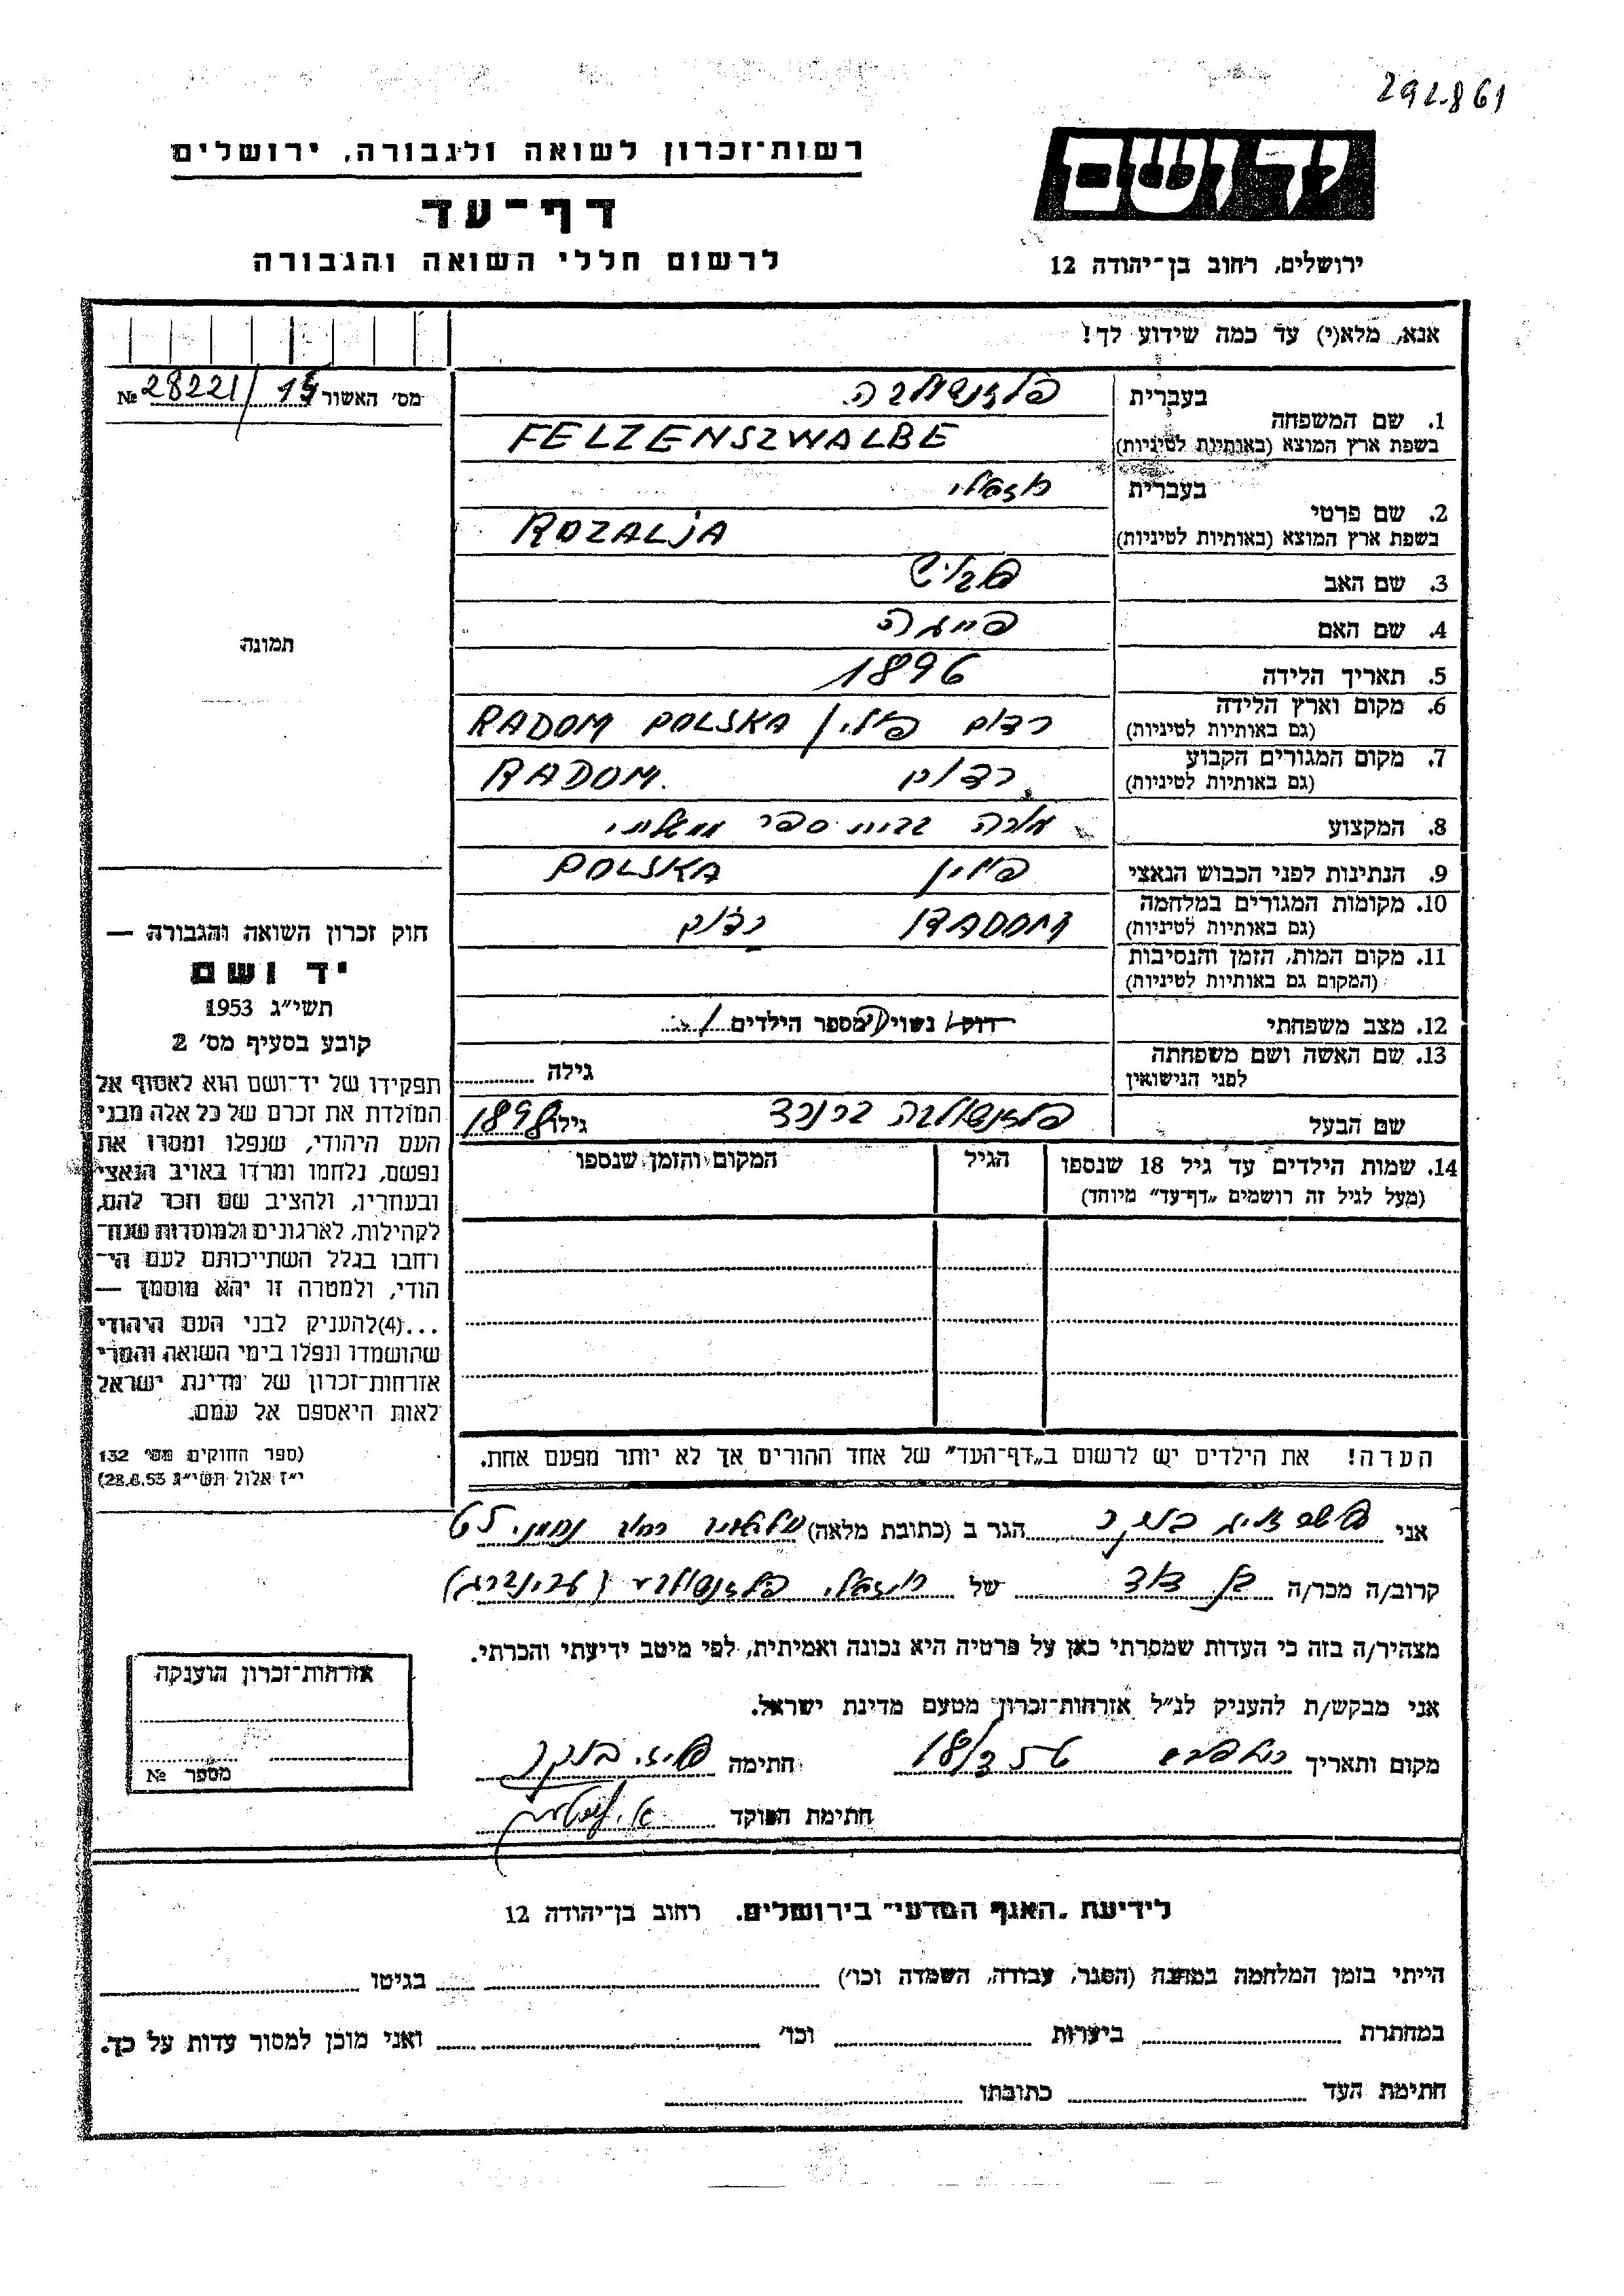 292861
רשות־זכרון לשואה ולגבורה, ירושלים
דף־עד
לרשום חללי השואה והגבורה
יד ושם
ירושלים, רחוב בן־יהודה 12
אנא, מלא(י) עד כמה שידוע לך!
מס׳ האשור № 28221/
1. שם המשפחה
בעברית פלזנשולבה
בשפת ארץ המוצא (באותיות לטיניות) FELZENSZWALBE
2. שם פרטי
בעברית רוזאלי
בשפת ארץ המוצא (באותיות לטיניות) ROZALJA
3. שם האב
4. שם האם פייגה
5. תאריך הלידה 1896
6. מקום וארץ הלידה רדום פולין RADOM POLSKA
(גם באותיות לטיניות)
7. מקום המגורים הקבוע רדום RADOM.
(גם באותיות לטיניות)
8. המקצוע מורה בבית ספר ממשלתי
9. הנתינות לפני הכבוש הנאצי פולין POLSKA
10. מקומות המגורים במלחמה RADOM רדום
(גם באותיות לטיניות)
11. מקום המות, הזמן והנסיבות
(המקום גם באותיות לטיניות)
12. מצב משפחתי רווק/ נשוי/ מספר הילדים
13. שם האשה ושם משפחתה
לפני הנישואין
גילה
שם הבעל פלזנשולבה ברנרד גילו 1898
14. שמות הילדים עד גיל 18 שנספו הגיל המקום והזמן שנספו
(מעל לגיל זה רושמים „דף־עד” מיוחד)
הערה! את הילדים יש לרשום ב„דף־העד” של אחד ההורים אך לא יותר מפעם אחת.
תמונה
חוק זכרון השואה והגבורה —
יד ושם
תשי״ג 1953
קובע בסעיף מס׳ 2
תפקידו של יד־ושם הוא לאסוף אל
המולדת את זכרם של כל אלה מבני
העם היהודי, שנפלו ומסרו את
נפשם, נלחמו ומרדו באויב הנאצי
ובעוזריו, ולהציב שם וזכר להם,
לקהילות, לארגונים ולמוסדות שנח־
רבו בגלל השתייכותם לעם הי־
הודי, ולמטרה זו יהא מוסמך —
...(4)להעניק לבני העם היהודי
שהושמדו ונפלו בימי השואה והמרי
אזרחות־זכרון של מדינת ישראל
לאות היאספם אל עמם.
(ספר החוקים מס׳ 132
י״ז אלול תשי״ג 28.8.53)
אני הגר ב (כתובת מלאה)
קרוב/ה מכר/ה בן דוד של רוזאלי פלזנשולבה
מצהיר/ה בזה כי העדות שמסרתי כאן על פרטיה היא נכונה ואמיתית, לפי מיטב ידיעתי והכרתי.
אני מבקש/ת להעניק לנ״ל אזרחות־זכרון מטעם מדינת ישראל.
מקום ותאריך חתימה
חתימת הפוקד
אזרחות־זכרון הוענקה
מספר №
לידיעת „האגף המדעי” בירושלים, רחוב בן־יהודה 12
הייתי בזמן המלחמה במחנה (הסגר, עבודה, השמדה וכו׳) בגיטו
במחתרת ביערות וכו׳ ואני מוכן למסור עדות על כך.
חתימת העד כתובתו